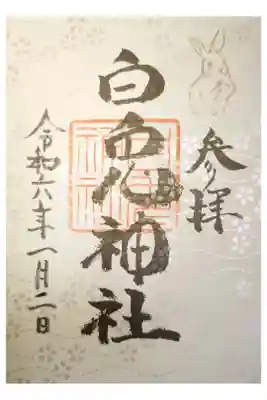 参拝
白兎神社
令和六年一月二日